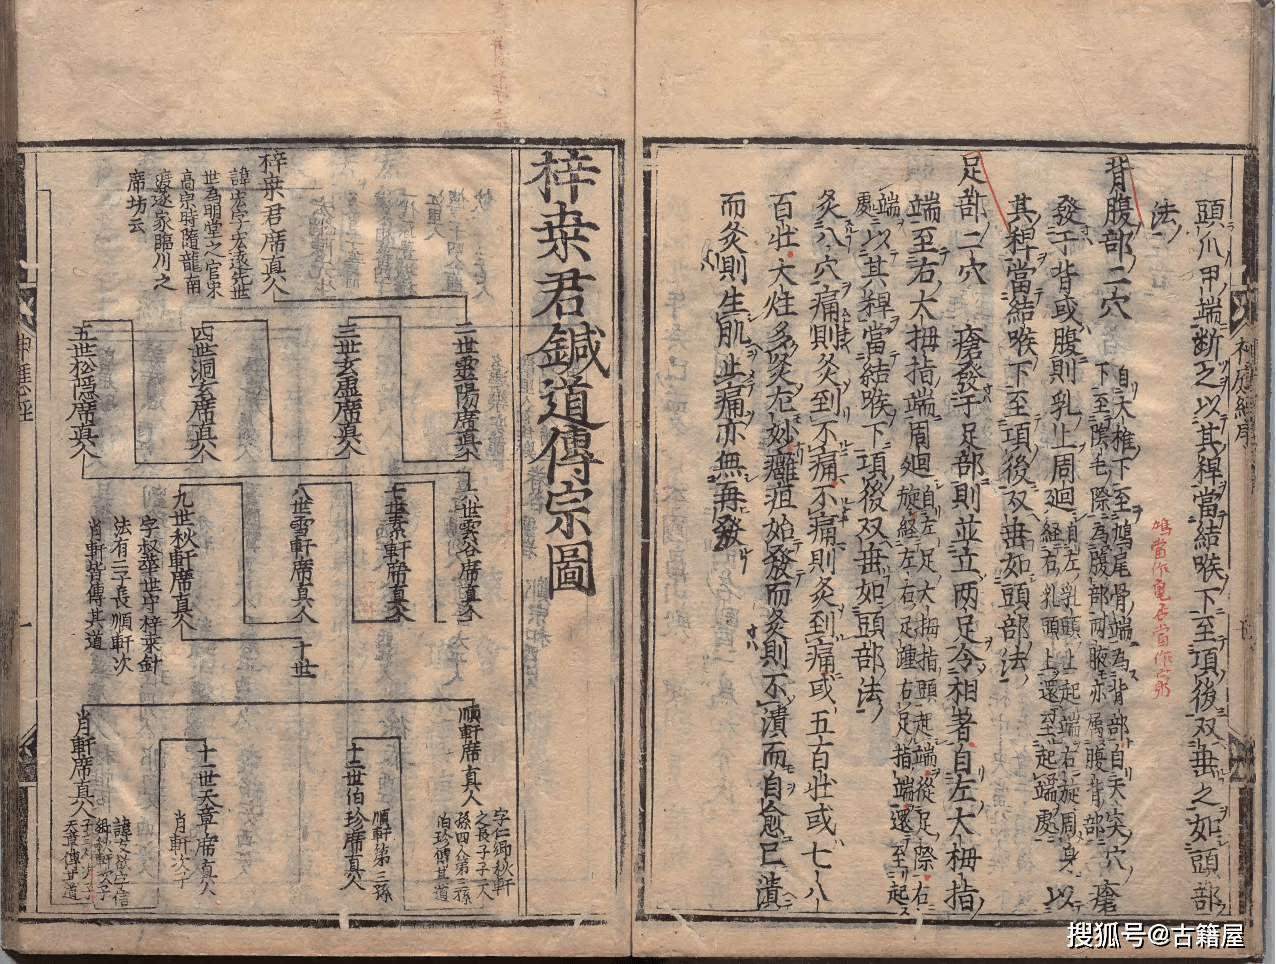 頭爪甲端斷之以其稈當結喉下至項後双垂之如頭部
法
背腹部二穴
自大椎下至鳩尾骨端為背部自天突穴
下至陰毛際為腹部兩腋亦属腹背部
瘡
發于背或腹則乳上周廻
自左乳頭上起端右旋周身
経右乳頭上還至起端處
以
其稈當結喉下至項後双垂如頭部法
足部二穴
瘡發于足部則並立兩足令相著自左大拇指
端至右大拇指端周廻
自左足大拇指頭起端從足際右
旋経左右足踵右足指端還至起
端
處
以其稈當結喉下項後双垂如頭部法
灸八穴痛則灸到不痛不痛則灸到痛或五百壮或七八
百壮大炷多灸尤妙癰疽始發而灸則不潰而自愈已潰
而灸則生肌止痛亦無再發
鳩當作龜
梓桒君鍼道傳宗圖
梓桒君席真人
諱宏字宏遠先世
世為明堂之官宋
高宗時隨龍南
渡遂家臨川之
席坊云
二世靈陽席真人
三世玄虛席真人
四世洞玄席真人
五世松隱席真人
六世雲谷席真人
七世素軒席真人
八世雪軒席真人
九世秋軒席真人
字叔華世守梓桒針
法有二子長順軒次
肖軒皆傳其道
十世
順軒席真人
字仁卿秋軒
之長子子一人
孫四人第三孫
伯珍傳其道
十二世伯珍席真人
順軒第三孫
十一世天章席真人
肖軒次子
肖軒席真人
天章傳其道
神應經序
神應經
搜狐号@古籍屋